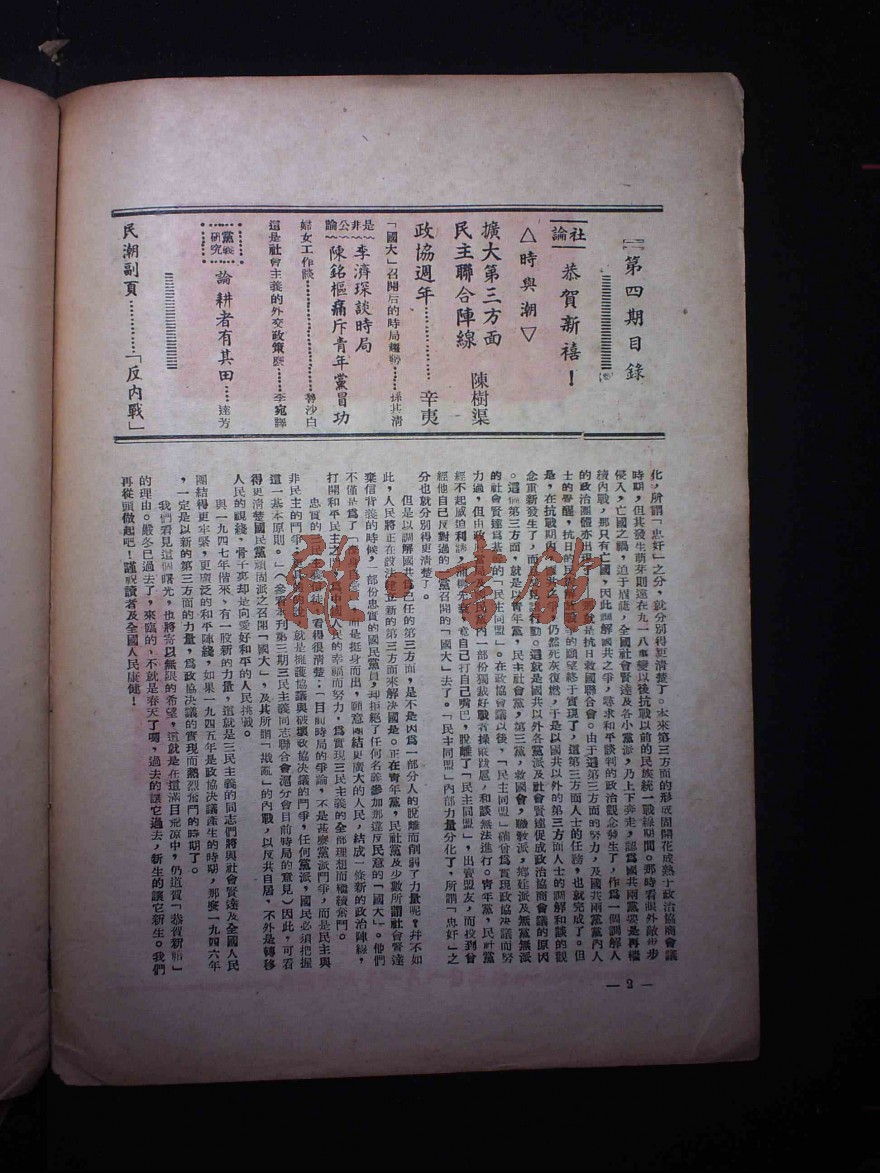 第四期目錄
社論
恭賀新禧！
△時與潮▽
擴大第三方面
民主聯合陣線
陳樹渠
政協週年…………辛夷
「國大」召開后的時局
孫其清
是非公論
李濟琛談時局
陳銘樞痛斥青年黨冒功
婦女工作談……魯沙白
這是社會主義的外交政策麼……李宛譯
黨義研究
論耕者有其田……達芳
民潮副頁…………「反內戰」
化，所謂「忠奸」之分，就分別得更清楚了。本來第三方面的形成固開花成熟于政治協商會議
時期，但其發生萌芽則遠在九一八事變以後抗戰以前的民族統一戰線期間。那時看眼外敵步步
侵入，亡國之禍，迫于眉睫，全國社會賢達及各小黨派，乃上下奔走，認為國共兩黨要是再繼
積內戰，那只有亡國，因此調解國共之爭，尋求和平談判的政治觀念發生了，作為一個調解人
的政治團體亦出現了，那就是抗日救國聯合會。由于這第三方面的努力，及國共兩黨黨內人
士的覺醒，抗日的民族解放戰爭的願望終于實現了，這第三方面人士的任務，也就完成了。但
是，在抗戰期內，國共之爭，仍然死灰復燃，于是以國共以外的第三方面人士的調解和談的觀
念重新發生了，而且見諸行動。這就是國共以外各黨派及社會賢達促成政治協商會議的原因
。這個第三方面，就是以青年黨，民主社會黨，第三黨，救國會，職教派，鄉建派及無黨無派
的社會賢達為基礎的「民主同盟」。在政協會議以後，「民主同盟」確曾為實現政協決議而努
力過，但由政府當局及國民黨內一部份獨裁好戰者操縱跋扈，和談無法進行。青年黨，民社黨
經不起威迫利誘，浦帆先蔡，竟自己打自己嘴巴，脫離了「民主同盟」，出賣盟友，而投到曾
經他自己反對過的一黨召開的「國大」去了。「民主同盟」內部力量分化了，所謂「忠奸」之
分也就分別得更清楚了。
但是以調解國共為己任的第三方面，是不是因為一部分人的脫離而削弱了力量呢？幷不如
此，人民將正在設法建立新的第三方面來解決國是。正在青年黨，民社黨及少數所謂社會賢達
棄信背義的時候，一部份忠實的國民黨員，却拒絕了任何名義參加那違反民意的「國大」。他們
不僅是為了而是挺身而出，願意團結更廣大的人民，結成一條新的政治陣線，
打開和平民主之為中國人民的幸福而努力，為實現三民主義的全部理想而繼續奮鬥。
忠實的三民主義信徒，看得很清楚：「目前時局的爭論，不是甚麼黨派鬥爭，而是民主與
非民主的鬥爭，更具體的說就是擁護協議與破壞政協決議的鬥爭，任何黨派，國民必須把握
這一基本原則。」（參看本刊第三期三民主義同志聯合會滬分會目前時局的意見）因此，可看
得更清楚國民黨頑固派之召開「國大」，及其所謂「戡亂」的內戰，以反共自居，不外是轉移
人民的視綫，骨子裏却是向愛好和平的人民挑戰。
與一九四七年偕來，有一股新的力量，這就是三民主義的同志們將與社會賢達及全國人民
團結得更牢緊，更廣泛的和平陣綫，如果一九四五年是政協決議產生的時期，那麼一九四六年
，一定是以新的第三方面的力量，為政協決議的實現而熱烈奮鬥的時期了。
我們看見這個曙光，也將寄以無限的希望，這就是在這滿目荒涼中，仍道賀「恭賀新禧」
的理由。嚴冬已過去了，來臨的，不就是春天了嗎，過去的讓它過去，新生的讓它新生。我們
再從頭做起吧！謹祝讀者及全國人民康健！
— 2 —
雅·書館